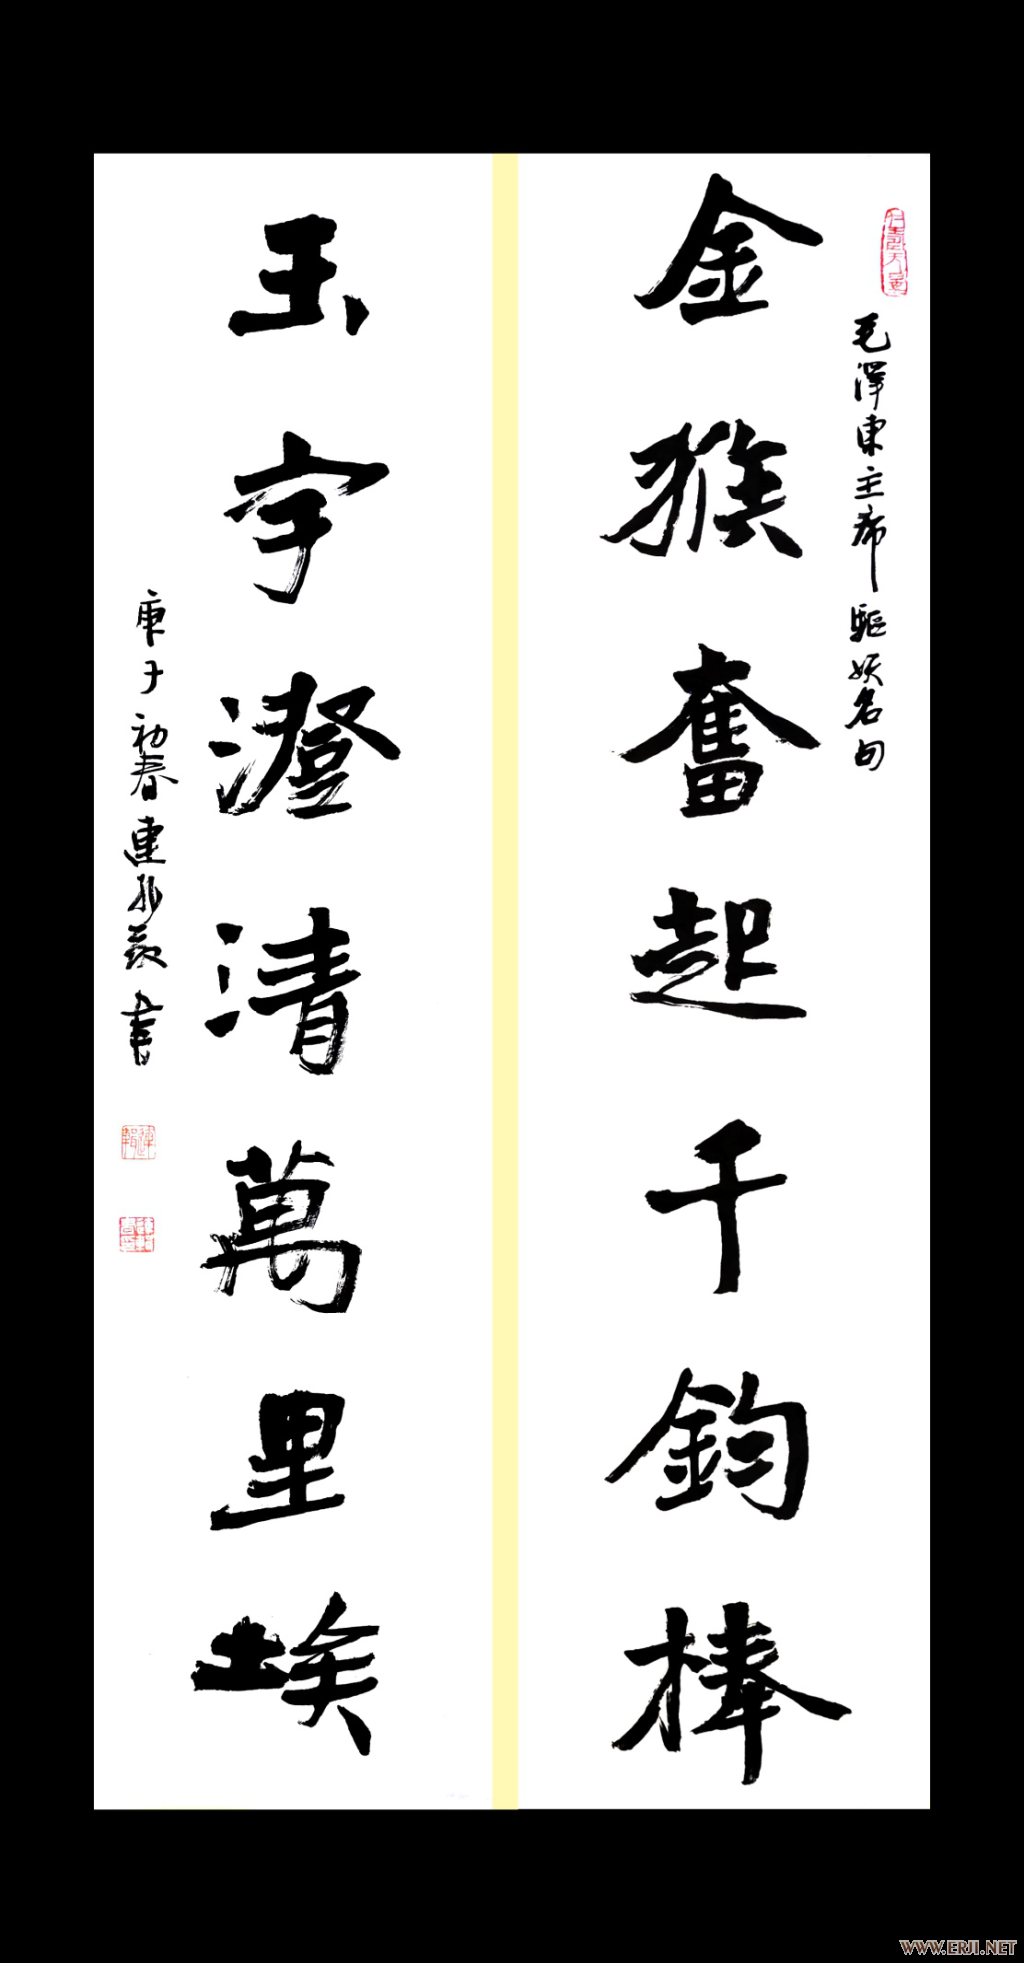 毛澤東主席驅妖名句
金猴奮起千鈞棒
玉宇澄清萬里埃
庚子初春連 書
WWW.ERJI.NET